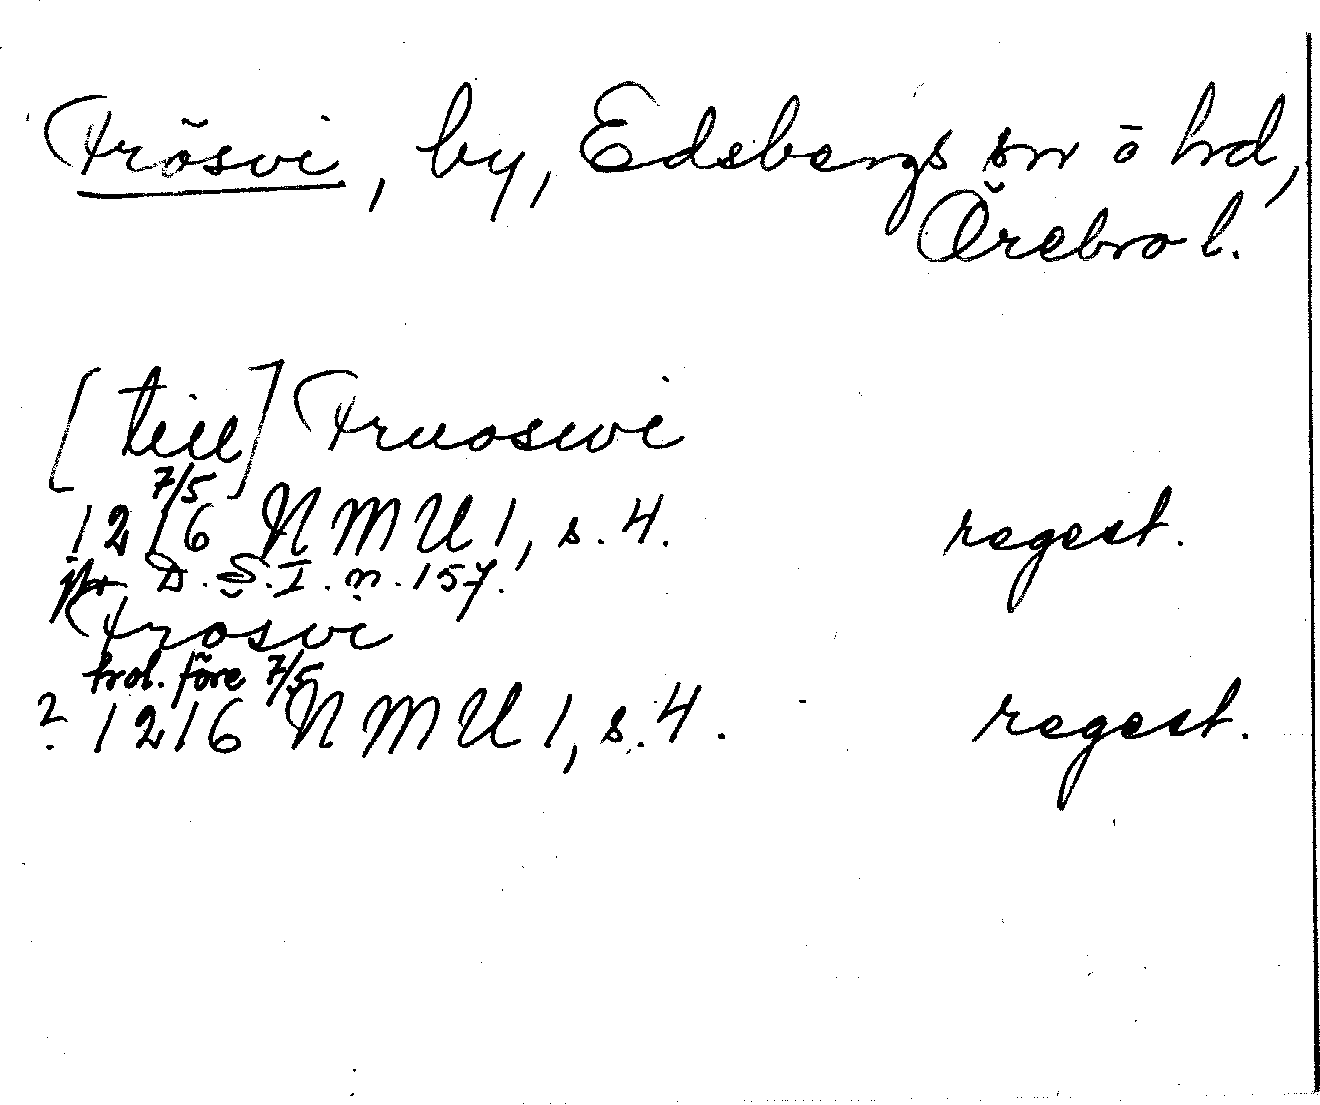 Frösvi, by, Edsbergs sn o hd,
Örebro l.
[till] Fruoswi
7/5
1216 NMU 1, s. 4. regest.
jfr D. S. I. n. 157.
Frosvi
trol. före 7/5
? 1216 NMU 1, s. 4. regest.